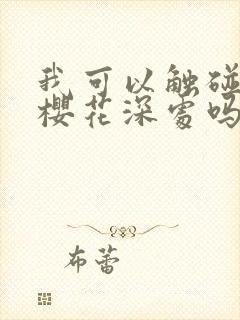 我可以触碰
樱花深处吗
布蕾